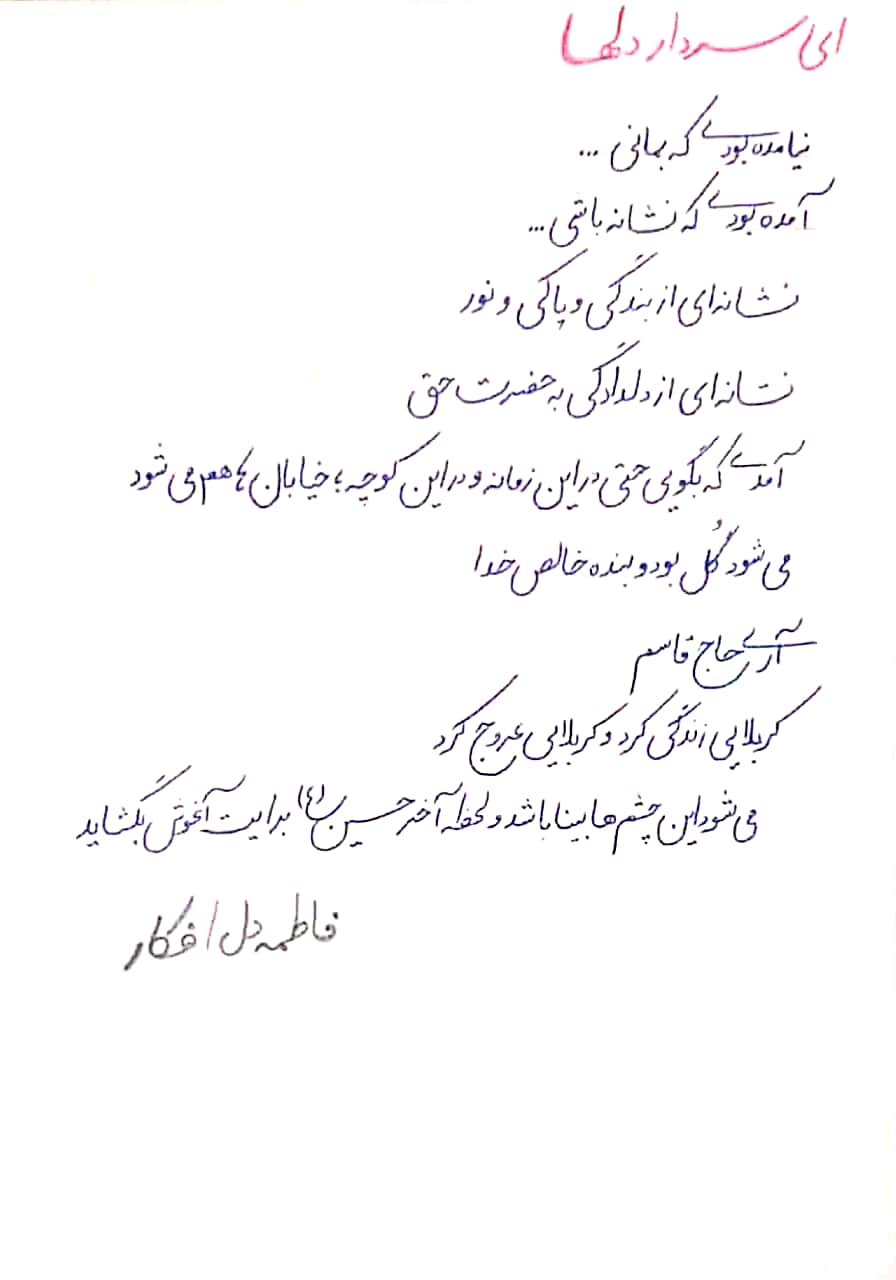 ای سردار دلها
نیامده بودی که بمانی ...
آمده بودی که نشانه باشی ...
نشانه‌ای از بندگی و پاکی و نور
نشانه‌ای از دلدادگی به حضرت حق
آمدی که بگویی حتی در این زمانه و در این کوچه ؛ خیابان ها هم می شود
می شود گُل بود و بنده خالص خدا
آری حاج قاسم
کربلایی زندگی کرد و کربلایی عروج کرد
می شود این چشم ها بینا باشد و لحظه آخر حسین (ع) برایت آغوش بگشاید
فاطمه دل افکار